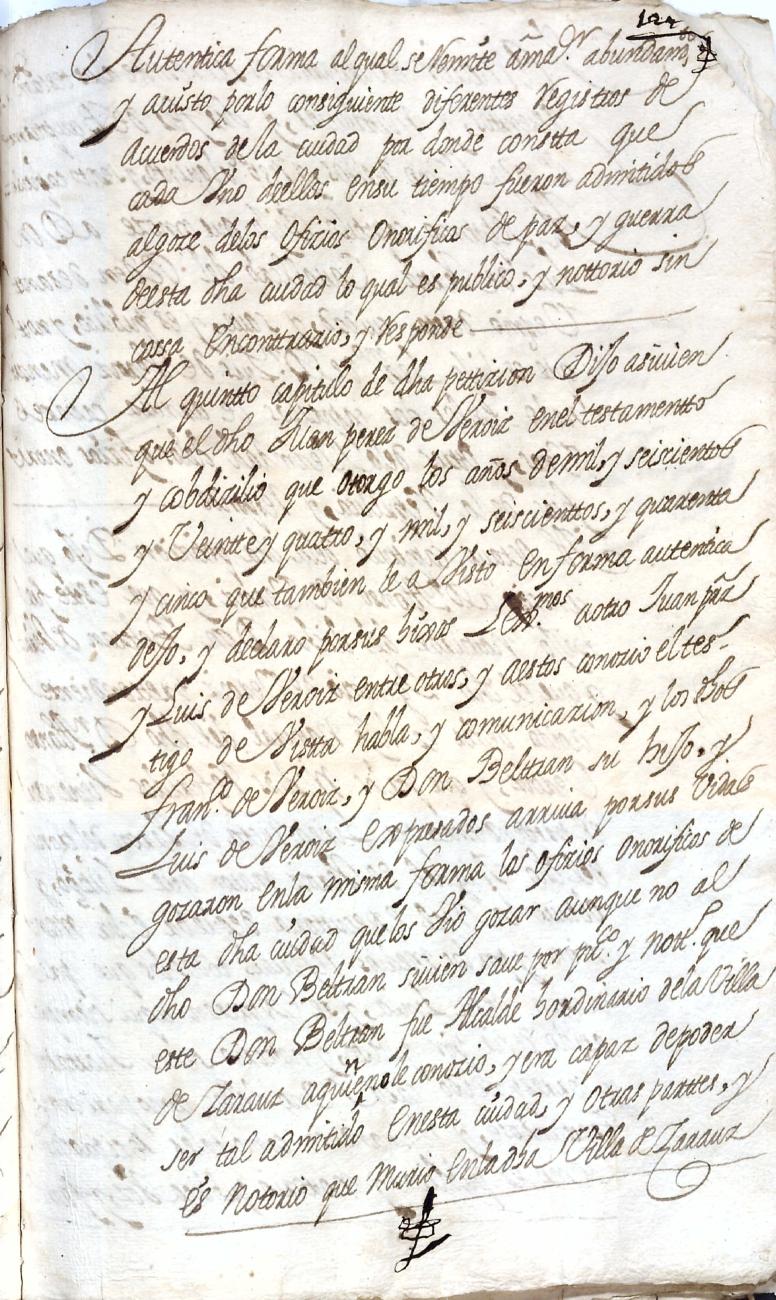 124
Autentica forma al qual se Remite a mayr. abundamto
y a visto por lo consiguiente diferentes Registros de
acuerdos de la ciudad por donde constta que
cada Uno de ellos en su tiempo fueron admitidos
al goze delos Ofizios Onorificos de paz, y guerra
de esta dha ciudad lo qual es publico, y nottorio sin
cossa en conttrario, y Responde
Al quintto capitulo de dha pettizion Dijo asi vien
que el dho Juan perez de Veroiz en el testamentto
y cobdizilio que otorgo los años de mil, y seiscientos
y Veintte y quatro, y mil, y seiscienttos, y quarenta
y cinco que tambien le a Visto en forma autentica
dejo, y declaro por sus hixos Lexmos. a otro Juan prz
y Luis de Veroiz entre otros, y a estos conozio el tes-
tigo de Vistta habla, y comunicazion, y los dhos
franco. de Veroiz, y Don Belttran su hijo, y
Luis de Veroiz expresados arriva por sus Vidas
gozaron en la misma forma los Ofizios Onorificos de
esta dha ciudad que los Vio gozar aunque no al
dho Don Beltran si vien save por pco. y notro. que
este Don Beltran fue Alcalde hordinario de la Villa
de Zarauz a quien no le conozio, y era capaz de poder
ser tal admitido en esta ciudad, y otras parttes, y
es Notorio que Murio en la dha Villa de Zarauz